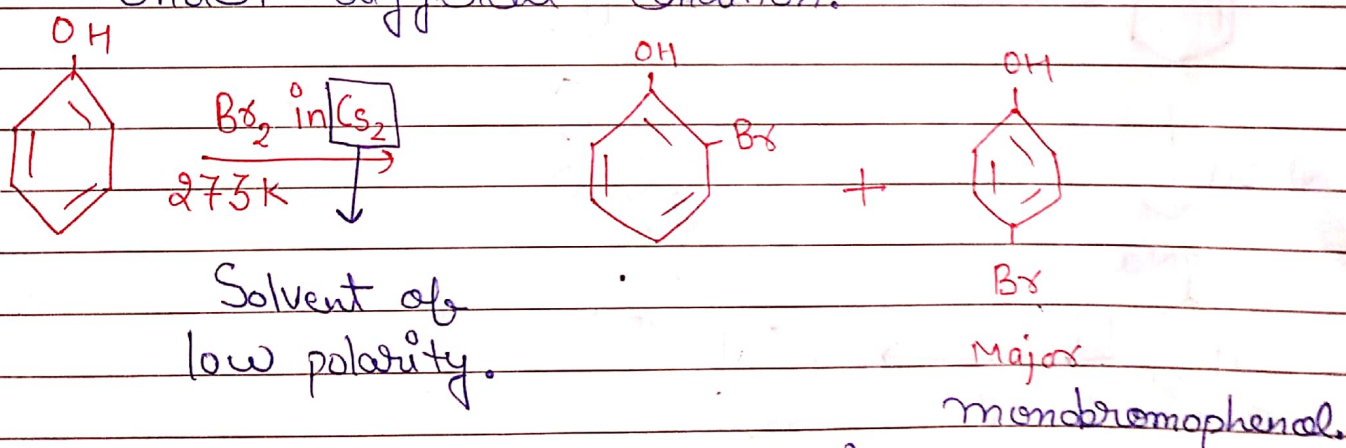 OH
OH
OH
Br2 in Cs2
273K
Br
+
Br
Solvent of
low polarity.
Major
monobromophenol.